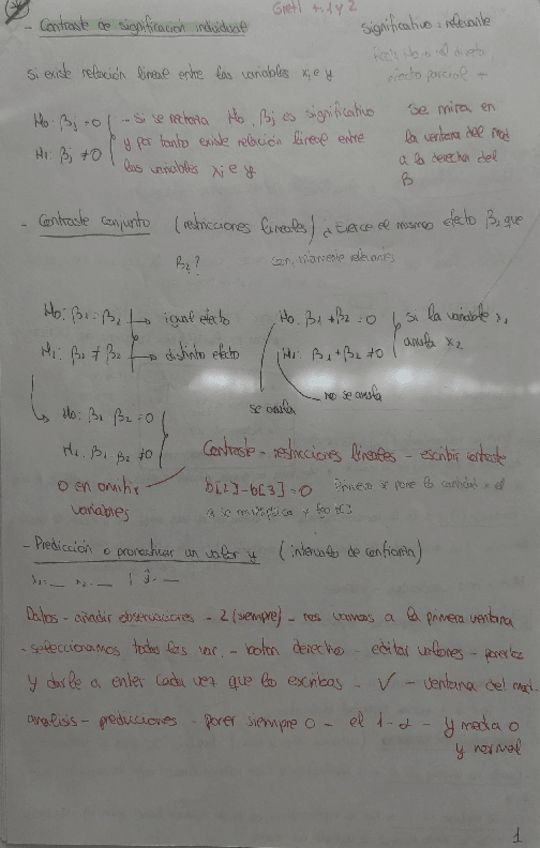 Gretl t.1 y 2
- Contraste de significacion individual
significativo = relevante
efecto parcial
Si existe relación lineal entre las variables xj e y
H0: βj = 0
H1: βj ≠ 0
- Si se rechaza H0, βj es significativo
y por tanto existe relación lineal entre
las variables xj e y
Se mira en
la ventana del mod
a la derecha del
β
- Contraste conjunto (restricciones lineales) ¿Ejerce el mismo efecto β1 que
β2?
conjuntamente relevantes
H0: β1 = β2 → igual efecto
H1: β1 ≠ β2 → distinto efecto
H0: β1 + β2 = 0
H1: β1 + β2 ≠ 0
si la variable x1
anula x2
se anula
no se anula
H0: β1 β2 = 0
H1: β1 β2 ≠ 0
o en omitir
variables
Contraste - restricciones lineales - escribir contraste
b[2]-b[3]=0
se pone la cantidad
- Predicción o pronosticar un valor y (intervalo de confianza)
Datos - añadir observaciones - 2 (siempre) - nos vamos a la primera ventana
- seleccionamos todas las var. - boton derecho - editar valores - ponerlos
y darle a enter cada vez que lo escribas - √ - ventana del mod.
analisis - predicciones - poner siempre 0 - el 1-α - y media o
y normal
1